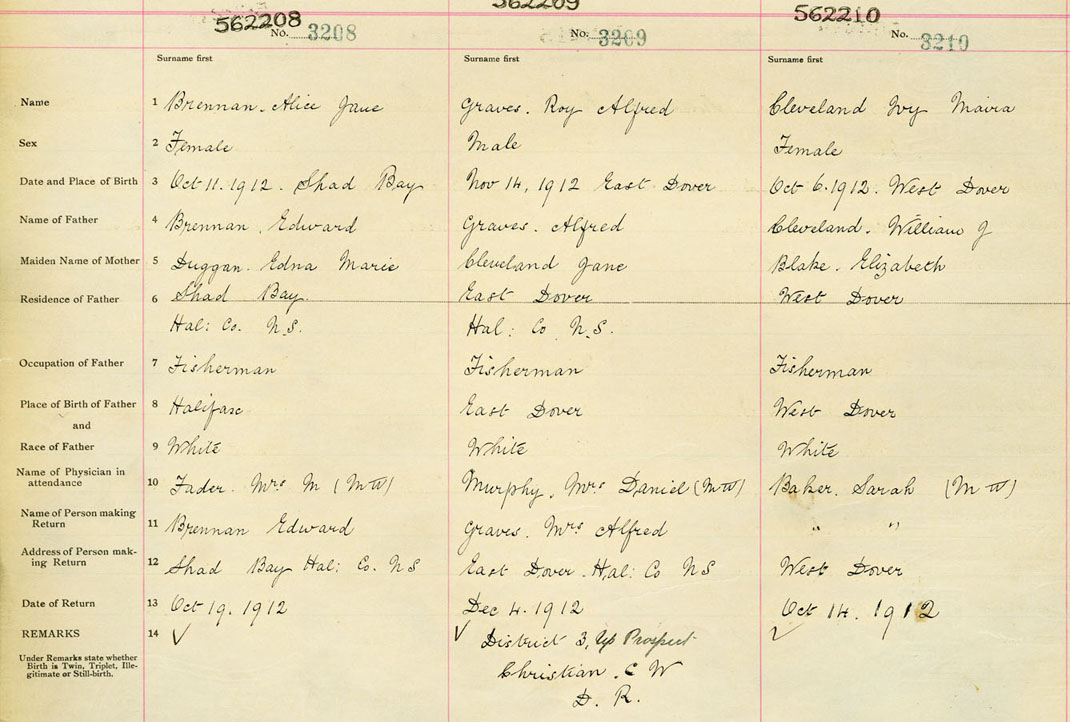 562208 562209 562210
No. 3208 No. 3209 No. 3210
Surname first Surname first Surname first
Name 1 Brennan. Alice Jane Graves. Roy Alfred Cleveland Ivy Maira
Sex 2 Female Male Female
Date and Place of Birth 3 Oct 11. 1912. Shad Bay Nov 14, 1912 East Dover Oct 6. 1912. West Dover
Name of Father 4 Brennan. Edward Graves. Alfred Cleveland. William J
Maiden Name of Mother 5 Duggan. Edna Marie Cleveland Jane Blake. Elizabeth
Residence of Father 6 Shad Bay. East Dover West Dover
Hal: Co. N.S. Hal: Co N.S.
Occupation of Father 7 Fisherman Fisherman Fisherman
Place of Birth of Father 8 Halifax East Dover West Dover
and
Race of Father 9 White White White
Name of Physician in
attendance 10 Fader. Mrs M (MW) Murphy. Mrs Daniel (MW) Baker. Sarah (MW)
Name of Person making
Return 11 Brennan Edward Graves. Mrs Alfred " "
Address of Person mak-
ing Return 12 Shad Bay Hal: Co. NS East Dover. Hal: Co NS West Dover
Date of Return 13 Oct 19. 1912 Dec 4. 1912 Oct 14. 1912
REMARKS 14 ✓ ✓ District 3, Up Prospect ✓
Under Remarks state whether
Birth is Twin, Triplet, Ille-
gitimate or Still-birth.
Christian. C W
D. R.